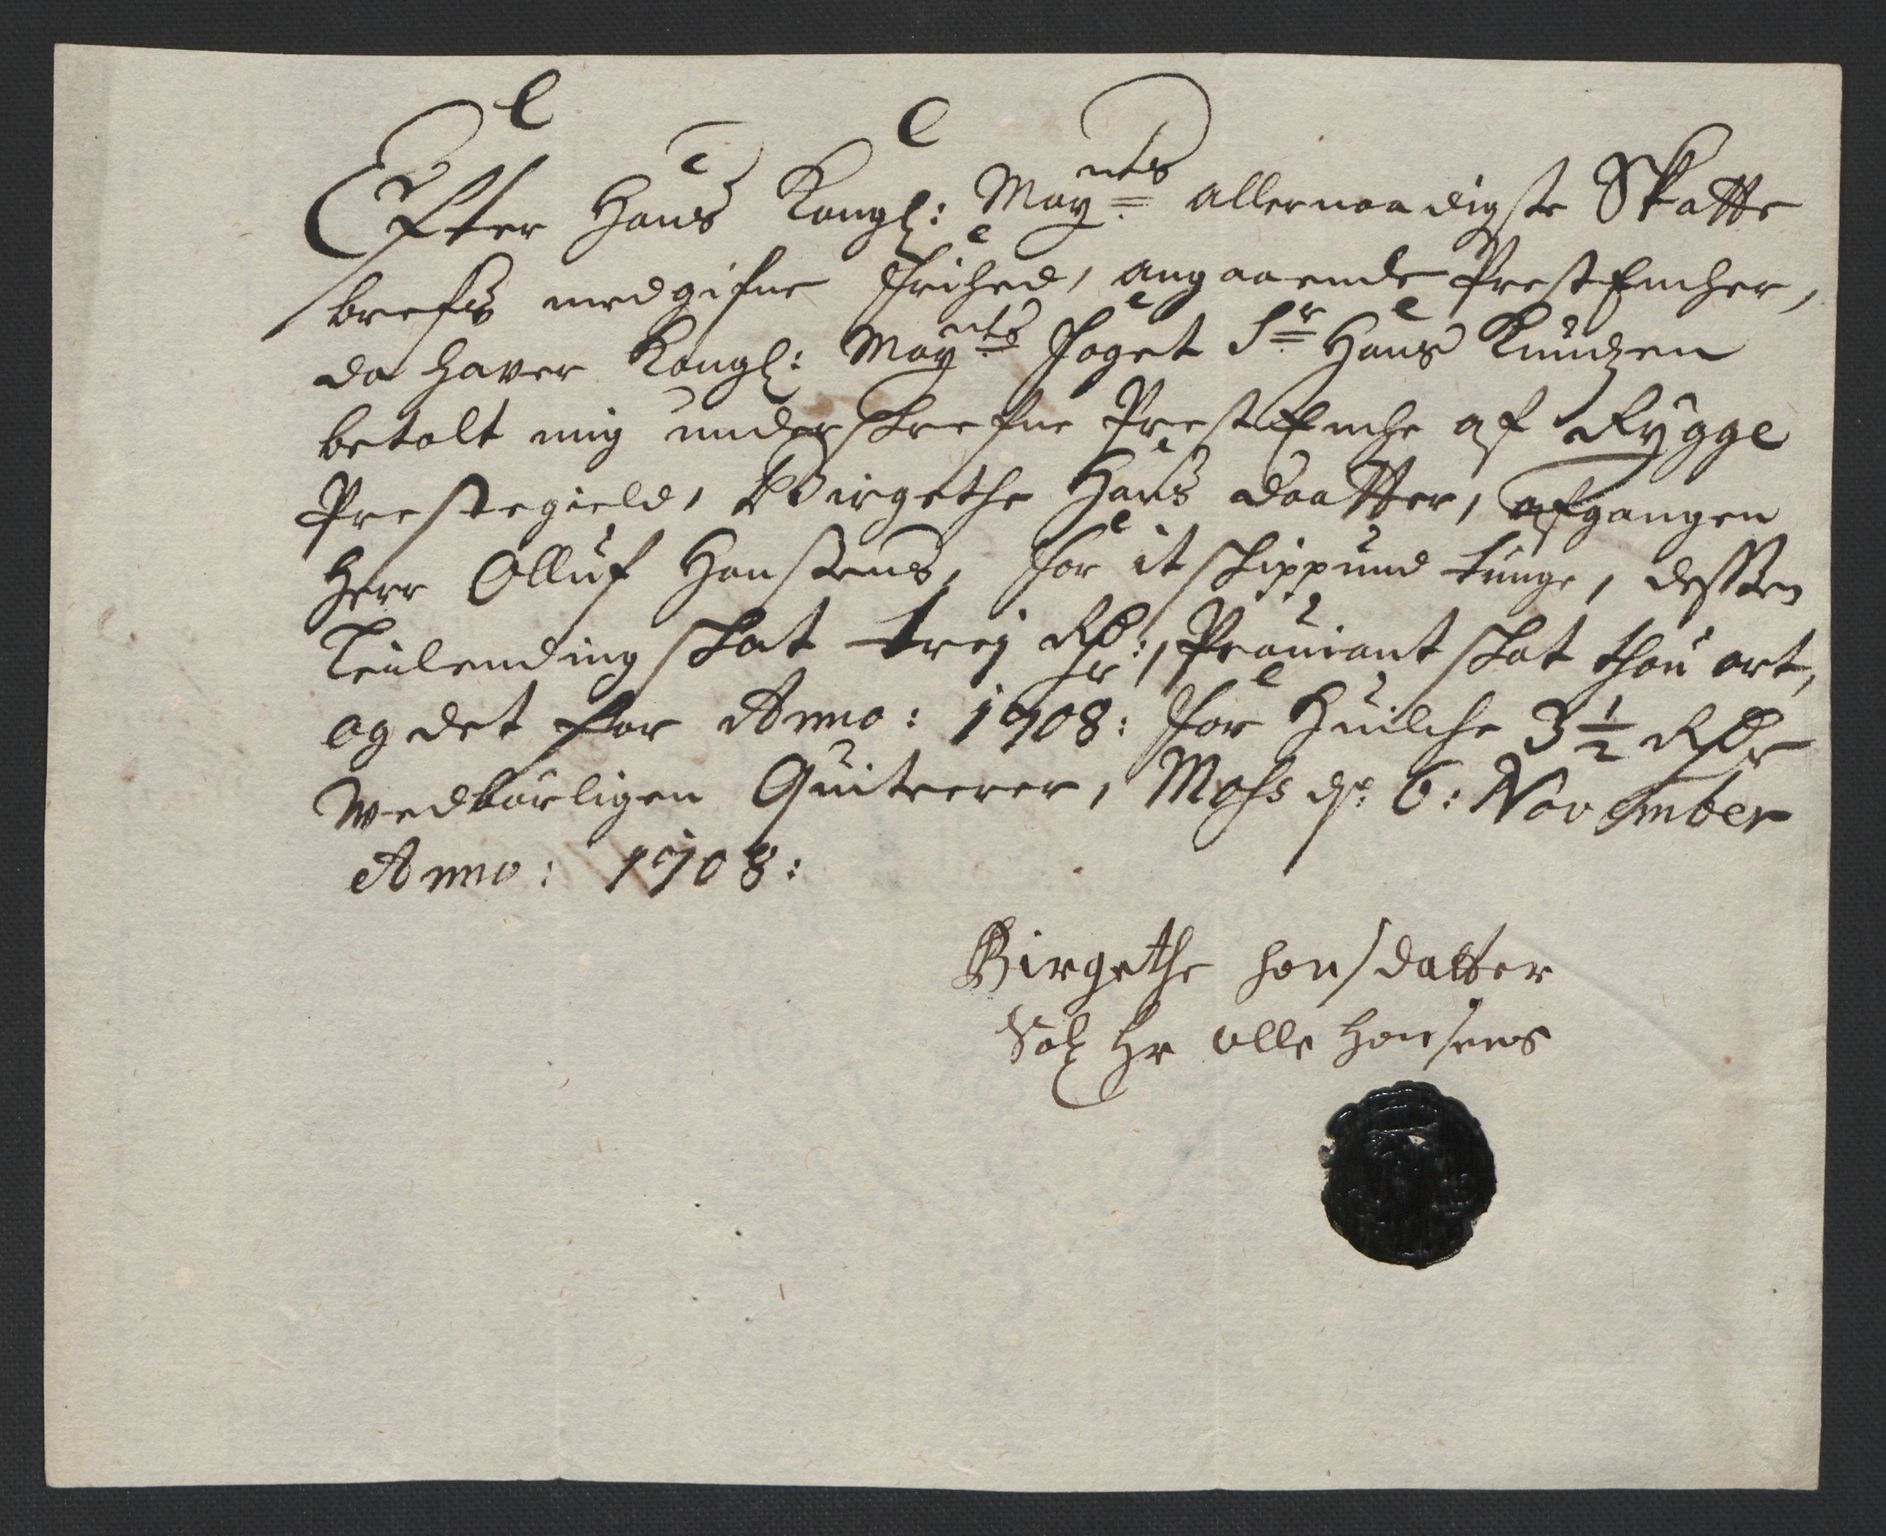 Efter Hans Kongl: Mayts allernaadigste Skatte
brefs medgifne Frihed, angaaende PrestEncher,
da haver Kongl: Mayts Foget Sr Hans Knudzen
betalt mig underskrefne PrestEnche af Rygge
Prestegield, Birgethe Hans daatter, afgangen
Herr Olluf Hansens, for it skippund tunge, dessen
Leilending skat trej Rdr:, Proviant skat thou ort,
og det for Anno: 1708: for Huilche 3 1/2 Rdr
Wedbørligen Quiterer, Moss d: 6: November
Anno: 1708:
Birgethe Hansdatter
Sal Hr Olle Hansens